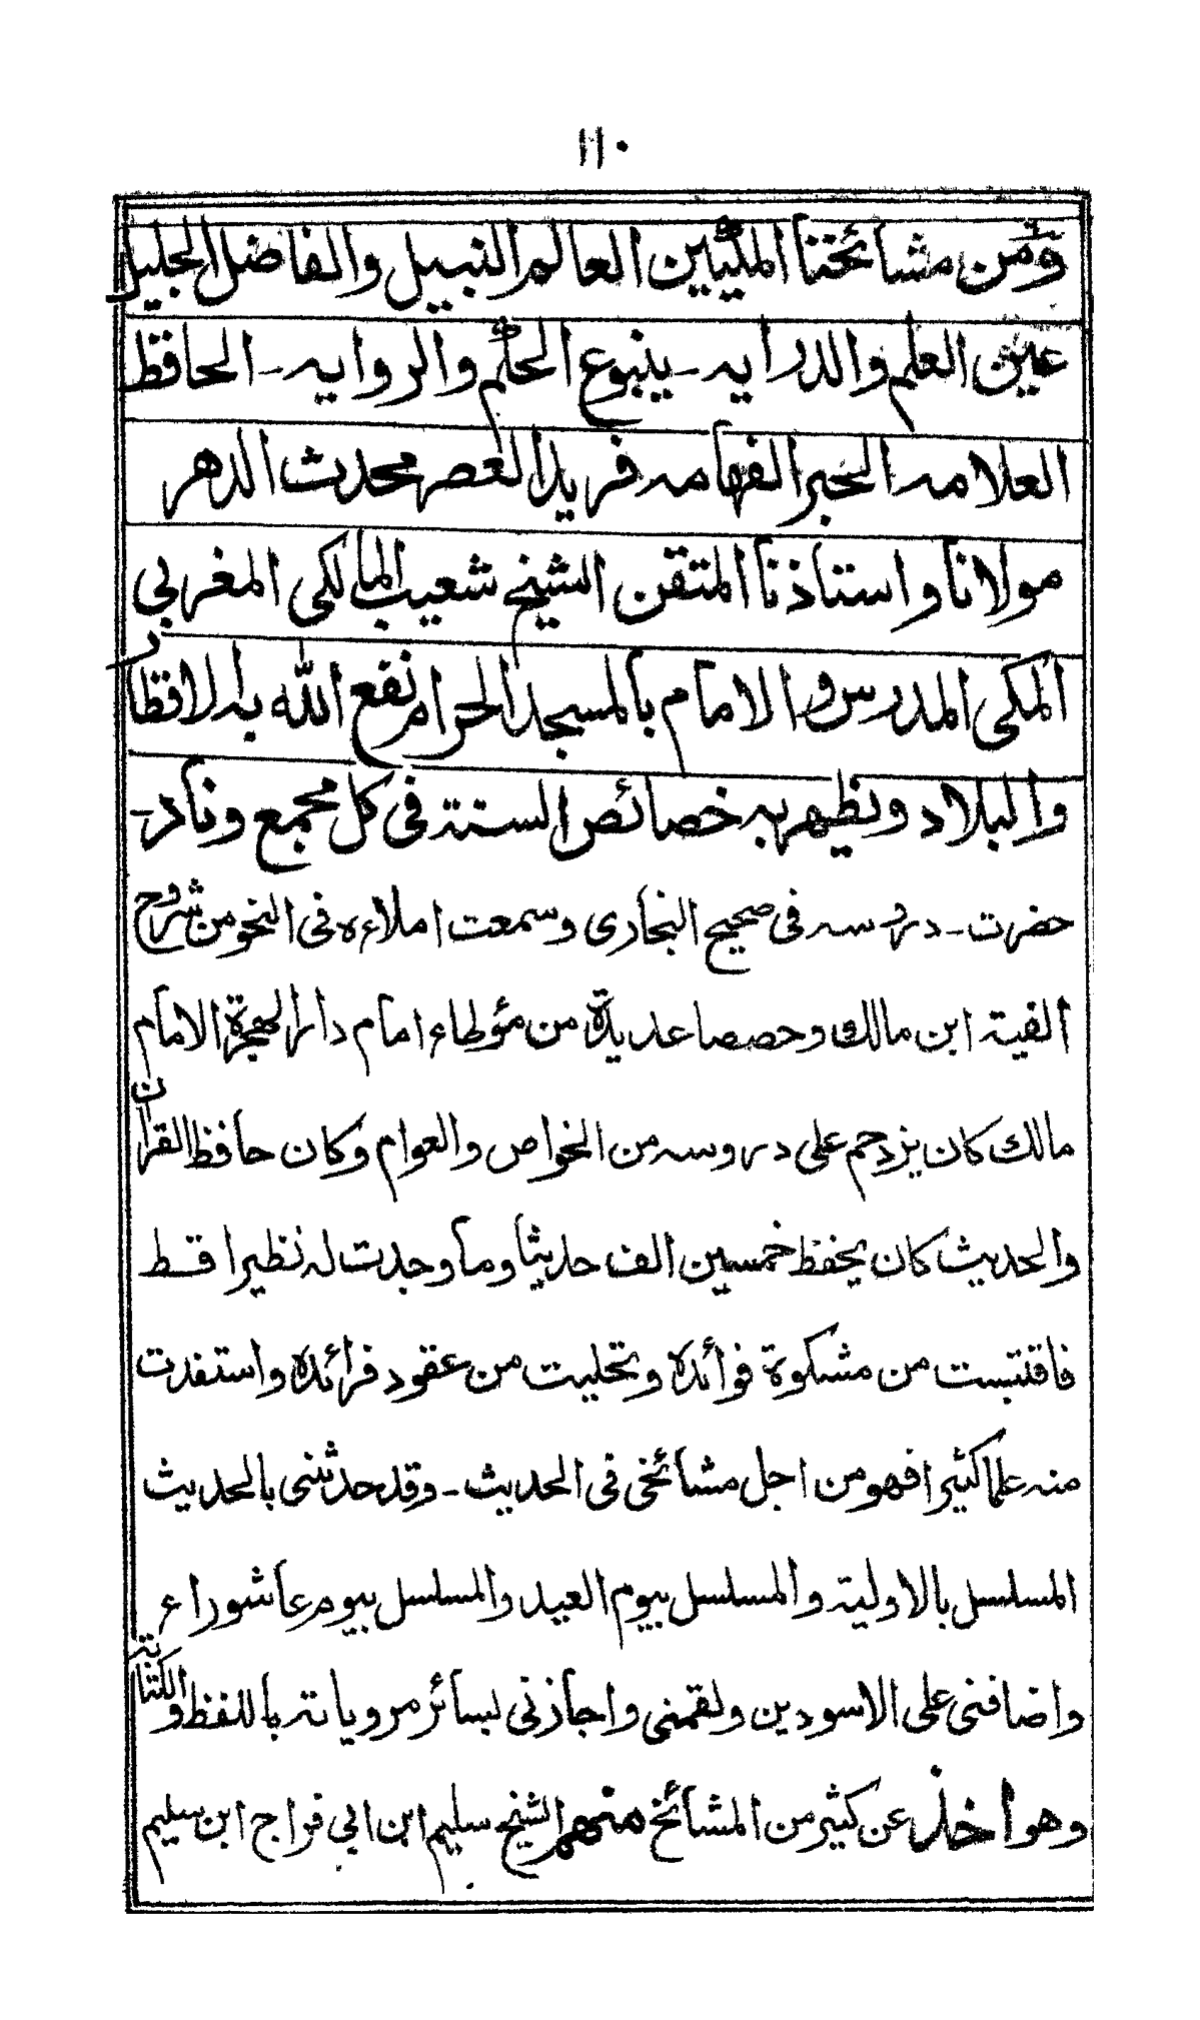 ١١٠
ومن مشائخنا المكيين العالم النبيل والفاضل الجليل
عين العلم والدرايه - ينبوع الحلم والروايه - الحافظ
العلامه الحبر الفهامه فريد العصر محدث الدهر
مولانا واستاذنا المتقن الشيخ شعيب المالكى المغربي
المكى المدرس و الامام بالمسجد الحرام نفع الله به الاقطار
والبلاد ونظهر به خصائص السنة فى كل مجمع وناد -
حضرت - دروسه فى صحيح البخارى وسمعت املاءه فى النحو من شروح
الفية ابن مالك وحصصا عديدة من مؤطاء امام دار الهجرة الامام
مالك كان يزدحم على دروسه من الخواص والعوام وكان حافظ القران
والحديث كان يحفظ خمسين الف حديثا وما وجدت له نظيرا قط
فاقتبست من مشكوة فوائده وتحليت من عقود فرائده واستفدت
منه علما كثيرا فهو من اجل مشائخى فى الحديث - وقد حدثنى بالحديث
المسلسل بالاولية والمسلسل بيوم العيد والمسلسل بيوم عاشوراء
واضافنى على الاسودين ولقمنى واجازنى لسائر مروياته باللفظ والكتابة
وهو اخذ عن كثير من المشائخ منهم الشيخ سليم ابن ابي فراج ابن سليم